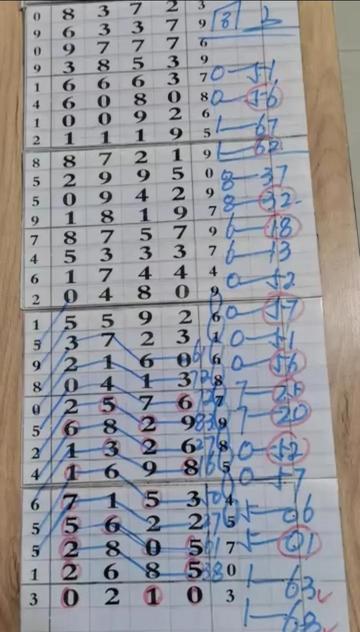 0 8 3 7 2 3
9 6 3 3 7 9 8 2
0 9 7 7 7 6
9 3 8 5 3 9
1 6 6 6 3 7 0-51
4 6 0 8 0 8 0-56
1 0 0 9 2 6 1-67
2 1 1 1 9 5 1-62
8 8 7 2 1 9 8-37
5 2 9 9 5 0 8-32
5 0 9 4 2 9 6-18
9 1 8 1 9 7 6-13
7 8 7 5 7 9 0-52
5 5 3 3 3 7
6 1 7 4 4 4
2 0 4 8 0 9 0-57
1 5 5 9 2 6 0-51
5 3 7 2 3 1 0-56
9 2 1 6 0 6
8 0 4 1 3 8 7-25
0 2 5 7 6 7 7-20
5 6 8 2 9 9 0-52
2 1 3 2 6 8 0-57
4 1 6 9 8 5
6 7 1 5 3 4 5-06
5 5 6 2 2 5 5-01
5 2 8 0 5 7
1 2 6 8 5 0 1-63
3 0 2 1 0 3 1-68